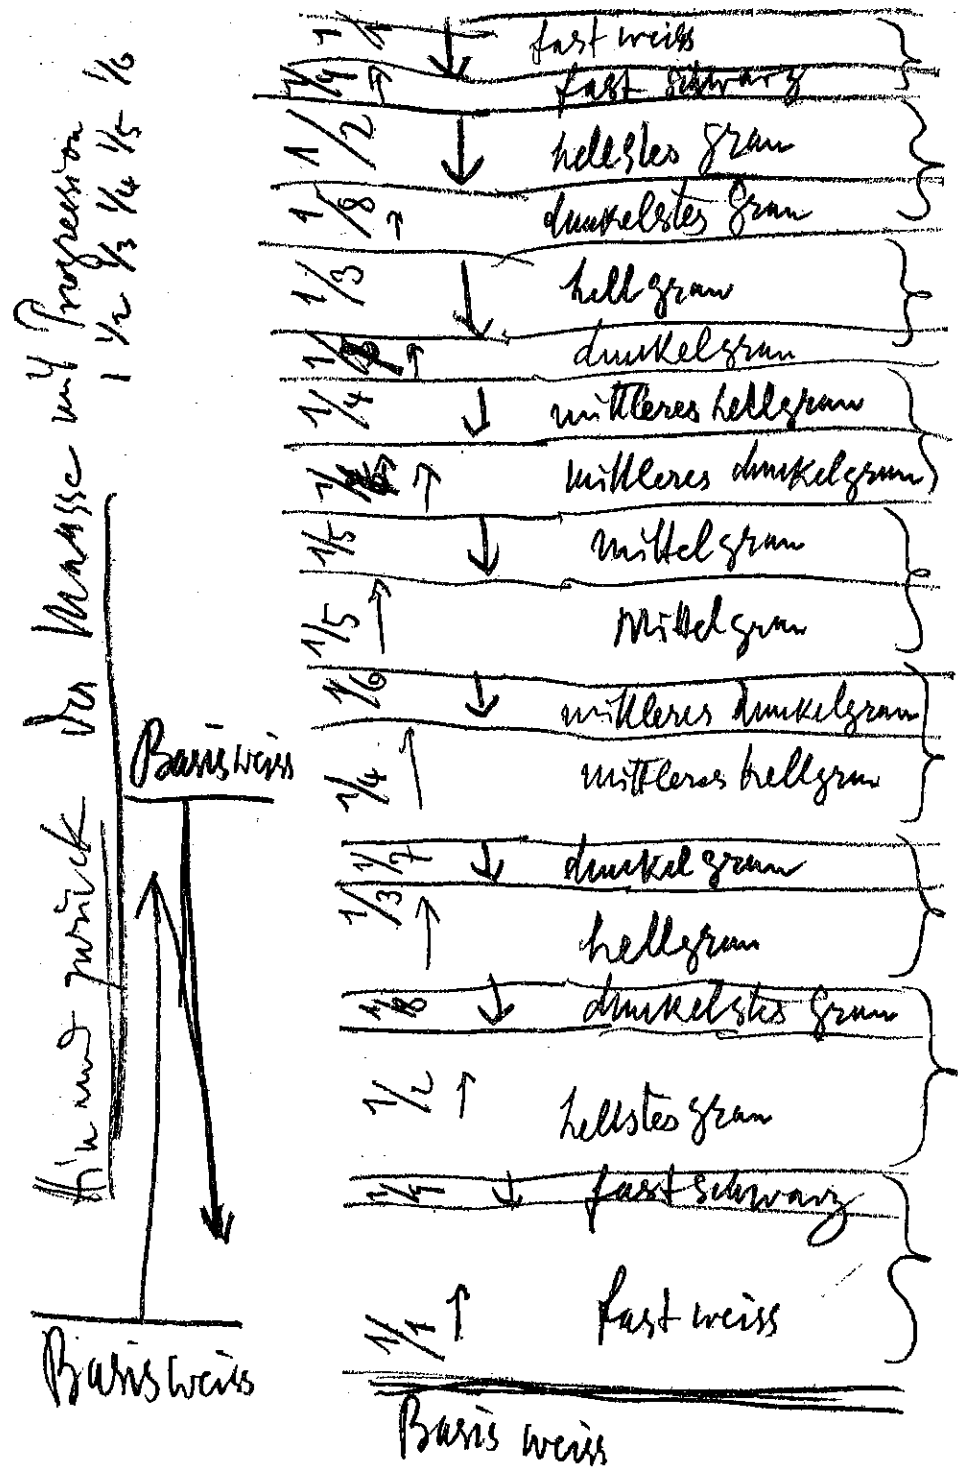 Hin und zurück der Masse mit Progression
1 1/2 1/3 1/4 1/5 1/6
Basis weiss
Basis weiss
1/1 ↓ fast weiss
1/9 ↑ fast schwarz
1/2 ↓ hellstes grau
1/8 ↑ dunkelstes Grau
1/3 ↓ hellgrau
↑ dunkelgrau
1/4 ↓ mittleres hellgrau
↑ mittleres dunkelgrau
1/5 ↓ mittelgrau
1/5 ↑ Mittelgrau
1/6 ↓ mittleres dunkelgrau
1/4 ↑ mittleres hellgrau
1/7 ↓ dunkelgrau
1/3 ↑ hellgrau
1/8 ↓ dunkelstes Grau
1/2 ↑ hellstes grau
1/9 ↓ fast schwarz
1/1 ↑ fast weiss
Basis weiss